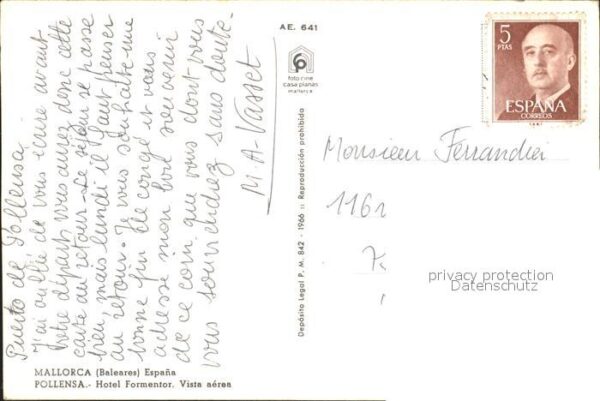 Puerto de Pollensa.
J'ai oublié de vous écrire avant
votre départ, vous aurez donc cette
carte au retour. Le séjour se passe
bien, mais lundi il faut penser
au retour. Je vous souhaite une
bonne fin de congé et vous
adresse mon bon souvenir
de ce coin que vous dont vous
vous souviendrez sans doute.
M.A. Vasset
MALLORCA (Baleares) España
POLLENSA.- Hotel Formentor. Vista aérea
AE. 641
foto cine
casa planas
mallorca
Depósito Legal P. M. 842 - 1966 :: Reproducción prohibida
5
PTAS
ESPAÑA
CORREOS
Monsieur
1161
privacy protection
Datenschutz